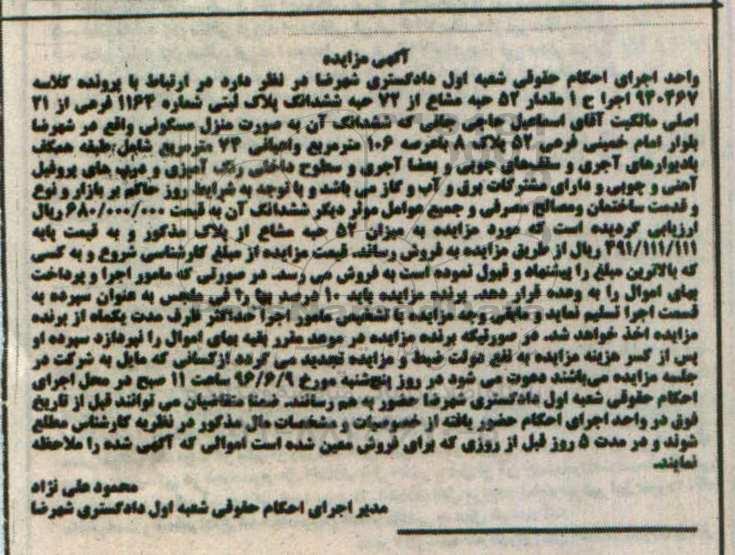 آگهی مزایده
واحد اجرای احکام حقوقی شعبه اول دادگستری شهرضا در نظر دارد در ارتباط با پرونده کلاسه
۹۴۰۴۶۷ اجرا ح ۱ مقدار ۵۲ حبه مشاع از ۷۲ حبه ششدانگ پلاک ثبتی شماره ۱۱۶۴ فرعی از ۲۱
اصلی مالکیت آقای اسماعیل حاجی جانی که ششدانگ آن به صورت منزل مسکونی واقع در شهرضا
بلوار امام خمینی فرعی ۵۲ پلاک ۸ باعرصه ۱۰۶ مترمربع واعیانی ۷۴ مترمربع شامل طبقه همکف
بادیوارهای آجری و سقفهای چوبی و بعضا آجری و سطوح داخلی رنگ آمیزی و درب های پروفیل
آهنی و چوبی و دارای مشترکات برق و آب و گاز می باشد و با توجه به شرایط روز حاکم بر بازار و نوع
و قدمت ساختمان ومصالح مصرفی و جمیع عوامل موثر دیگر ششدانگ آن به قیمت ۶۸۰/۰۰۰/۰۰۰ ریال
ارزیابی گردیده است که مورد مزایده به میزان ۵۲ حبه مشاع از پلاک مذکور و به قیمت پایه
۴۹۱/۱۱۱/۱۱۱ ریال از طریق مزایده به فروش رساند. قیمت مزایده از مبلغ کارشناسی شروع و به کسی
که بالاترین مبلغ را پیشنهاد و قبول نموده است به فروش می رسد. در صورتی که مامور اجرا و پرداخت
بهای اموال را به وعده قرار دهد. برنده مزایده باید ۱۰ درصد بها را فی المجلس به عنوان سپرده به
قسمت اجرا تسلیم نماید و مابقی وجه مزایده با تشخیص مامور اجرا حداکثر ظرف مدت یکماه از برنده
مزایده اخذ خواهد شد. در صورتیکه برنده مزایده در موعد مقرر بقیه بهای اموال را نپردازد سپرده او
پس از کسر هزینه مزایده به نفع دولت ضبط و مزایده تجدید می گردد ازکسانی که مایل به شرکت در
جلسه مزایده می‌باشند دعوت می شود در روز پنج‌شنبه مورخ ۹۶/۶/۹ ساعت ۱۱ صبح در محل اجرای
احکام حقوقی شعبه اول دادگستری شهرضا حضور به هم رسانند. ضمنا متقاضیان می توانند قبل از تاریخ
فوق در واحد اجرای احکام حضور یافته از خصوصیات و مشخصات مال مذکور در نظریه کارشناس مطلع
شوند و در مدت ۵ روز قبل از روزی که برای فروش معین شده است اموالی که آگهی شده را ملاحظه
نمایند.
محمود علی نژاد
مدیر اجرای احکام حقوقی شعبه اول دادگستری شهرضا